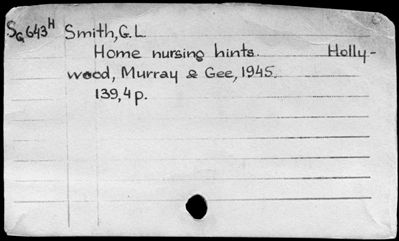 SG 643H Smith, G. L.
Home nursing hints. Holly-
wood, Murray & Gee, 1945.
139, 4 p.